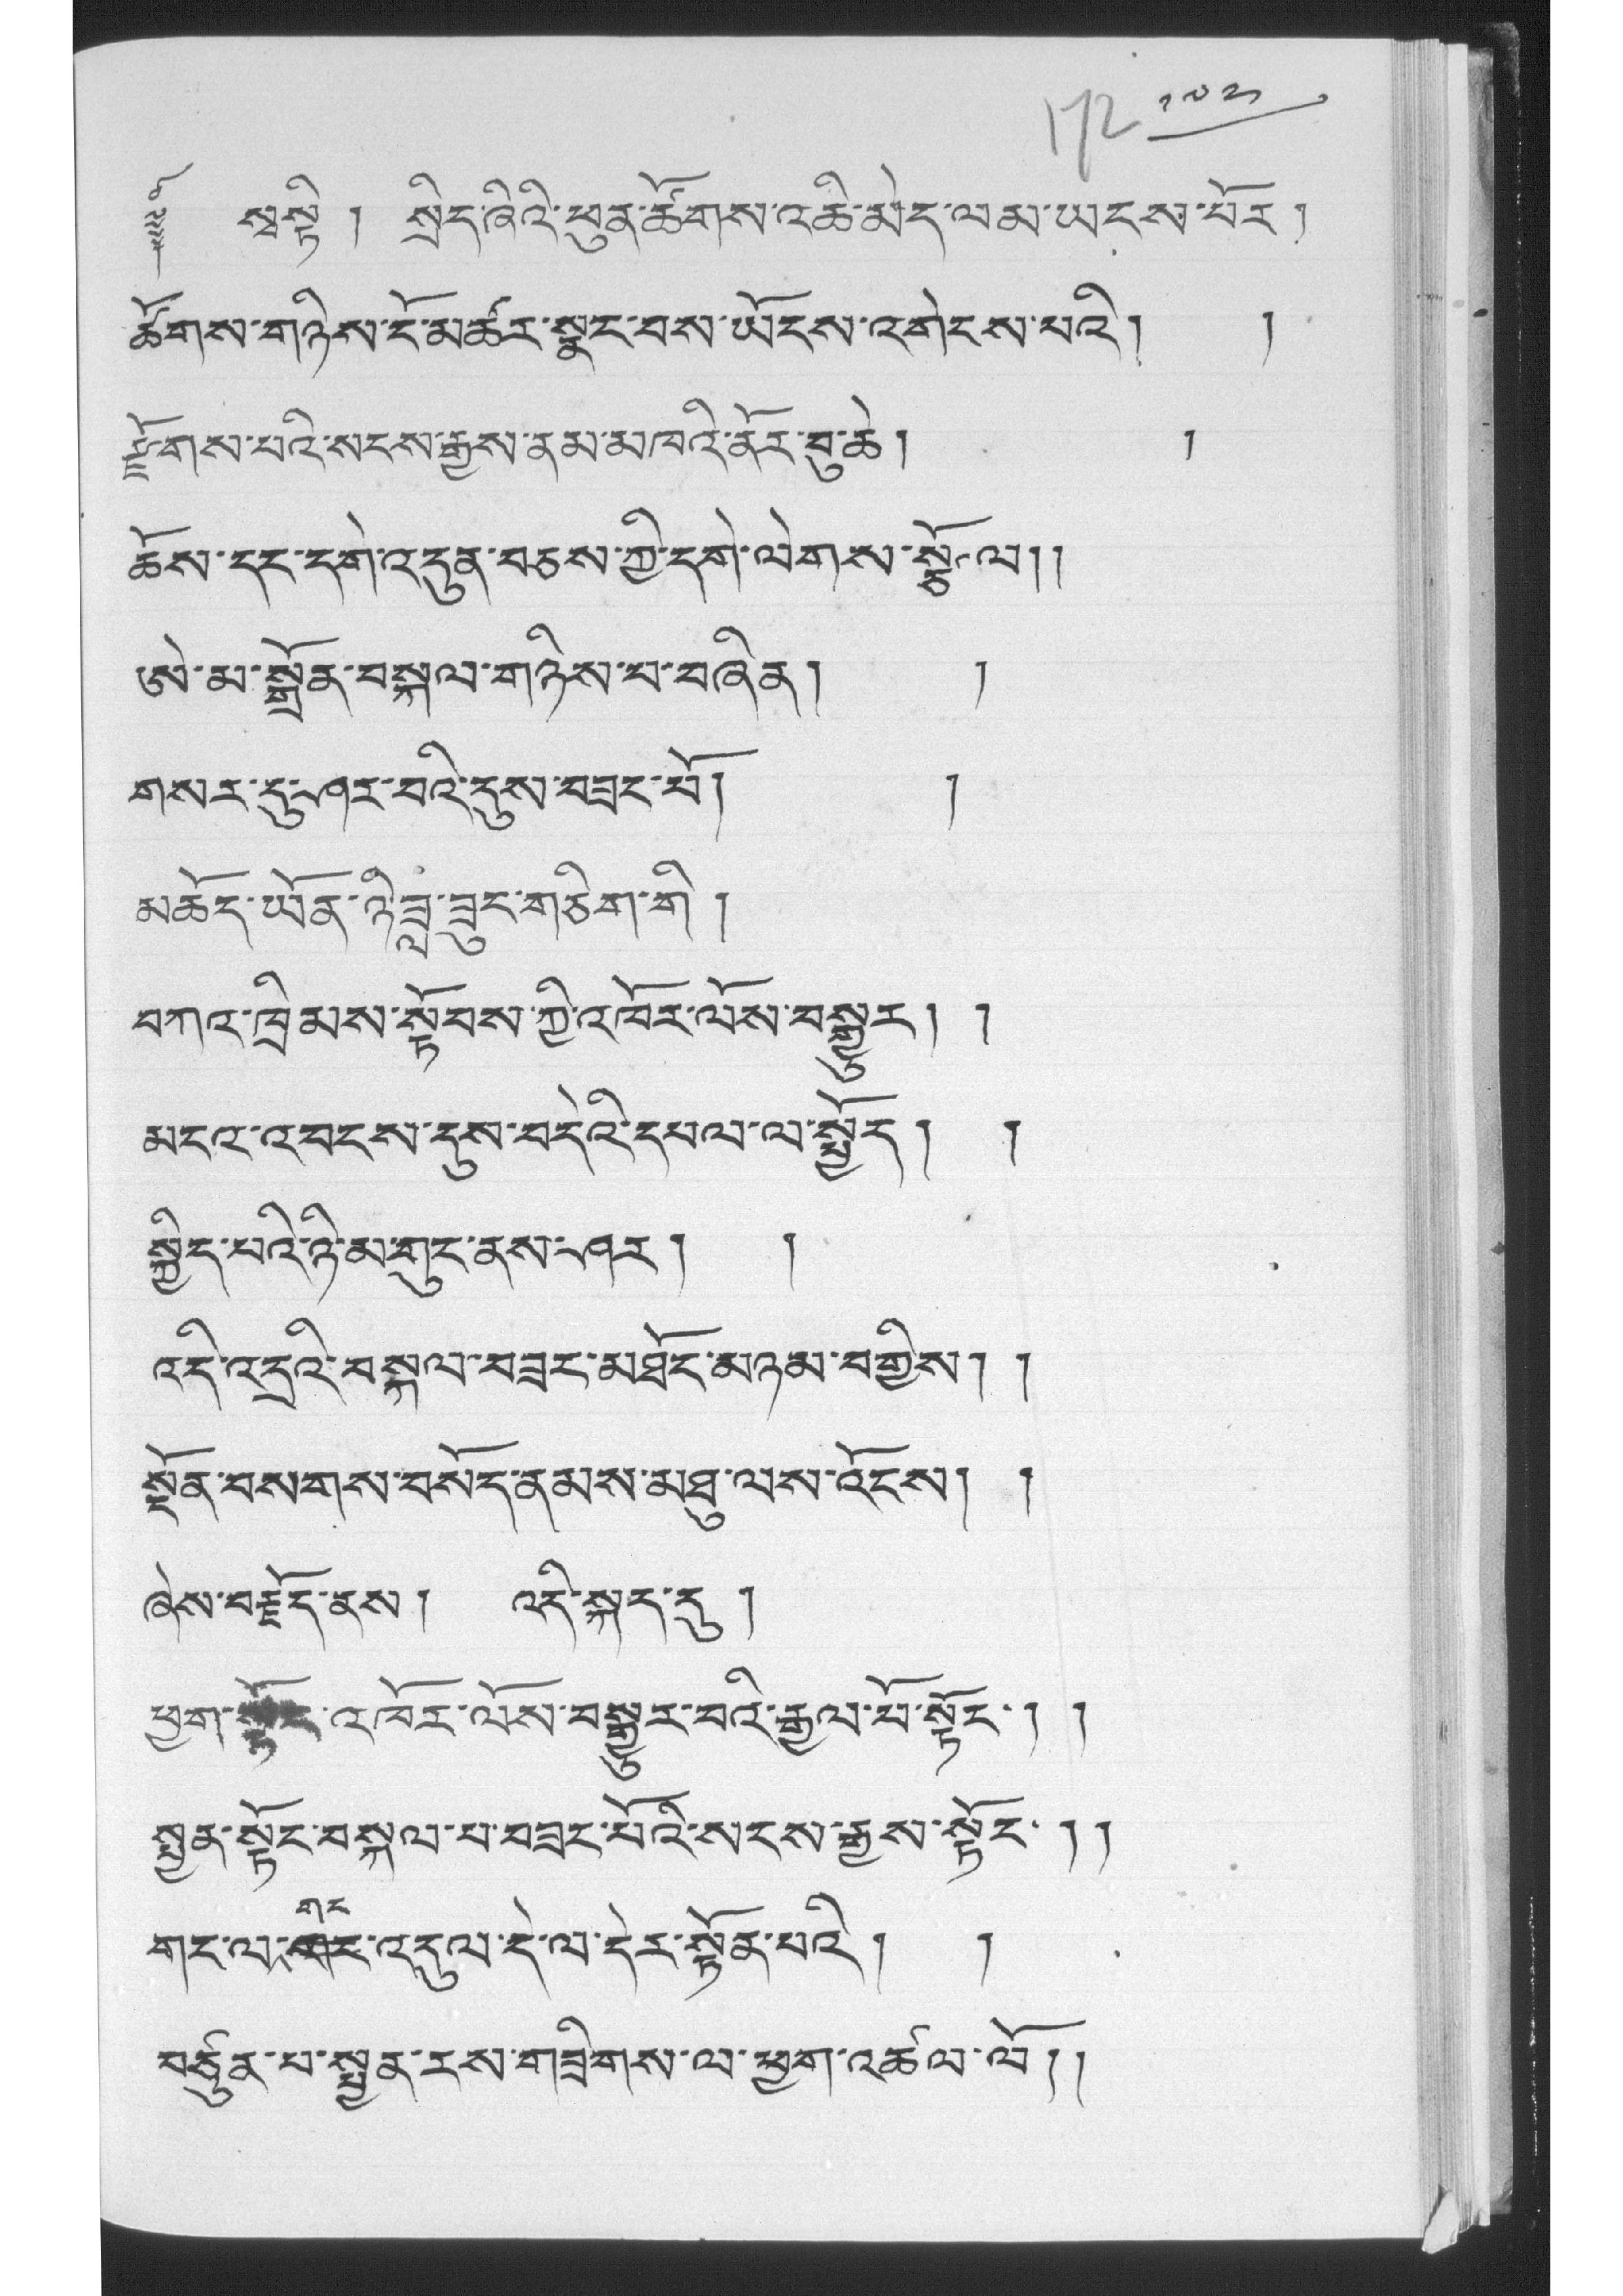 172 ༡༧༢
༄༅། སྭསྟི། སྲིད་ཞིའི་ཕུན་ཚོགས་འཆི་མེད་ལམ་ཡངས་པོར།
ཚོགས་གཉིས་ངོ་མཚར་སྣང་བས་ཡོངས་འགེངས་པའི། །
རྫོགས་པའི་སངས་རྒྱས་ནམ་མཁའི་ནོར་བུ་ཆེ། །
ཆོས་དང་དགེ་འདུན་བཅས་ཀྱི་དགེ་ལེགས་སྩོལ། །
ཨེ་མ་སྒྲོན་བསྐལ་གཉིས་པ་བཞིན། །
གསར་དུ་ཤར་བའི་དུས་བཟང་པོ། །
མཆོད་ཡོན་ཉི་ཟླ་ཟུང་གཅིག་གི །
བཀའ་ཁྲིམས་སྟོབས་ཀྱི་འཁོར་ལོས་བསྒྱུར། །
མངའ་འབངས་དུས་བདེའི་དཔལ་ལ་སྤྱོད། །
སྐྱིད་པའི་ཉི་མ་གུང་ནས་ཤར། །
འདི་འདྲའི་བསྐལ་བཟང་མཐོང་མཉམ་བགྱིས། །
སྔོན་བསགས་བསོད་ནམས་མཐུ་ལས་འོངས། །
ཞེས་བརྗོད་ནས། འདི་སྐད་དུ །
ཕྱག་སྟོང་འཁོར་ལོས་བསྒྱུར་བའི་རྒྱལ་པོ་སྟོང་། །
སྤྱན་སྟོང་བསྐལ་པ་བཟང་པོའི་སངས་རྒྱས་སྟོང་། །
གང་ལ་གང་འདུལ་དེ་ལ་དེར་སྟོན་པའི། །
བཙུན་པ་སྤྱན་རས་གཟིགས་ལ་ཕྱག་འཚལ་ལོ། །